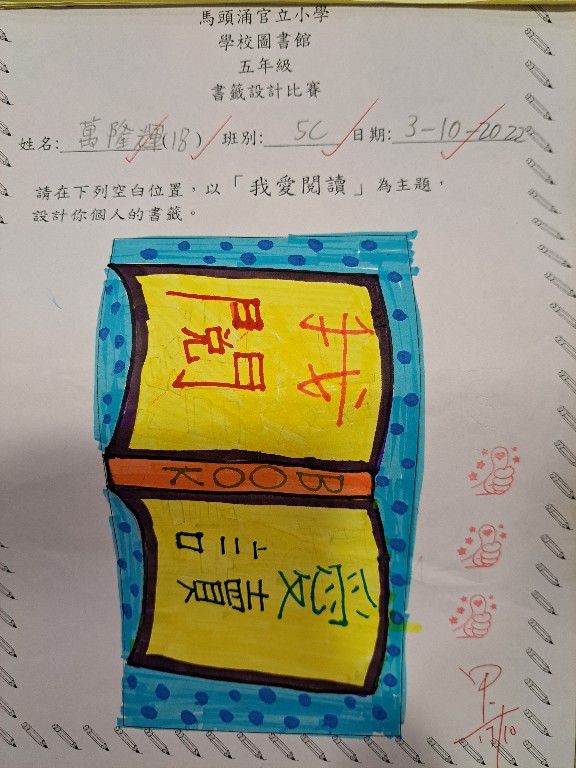 馬頭涌官立小學
學校圖書館
五年級
書籤設計比賽
姓名: 萬隆輝(18) 班別: 5C 日期: 3-10-2022
請在下列空白位置，以「我愛閱讀」為主題，
設計你個人的書籤。
我
閱
BOOK
愛
讀
甲-
17/10